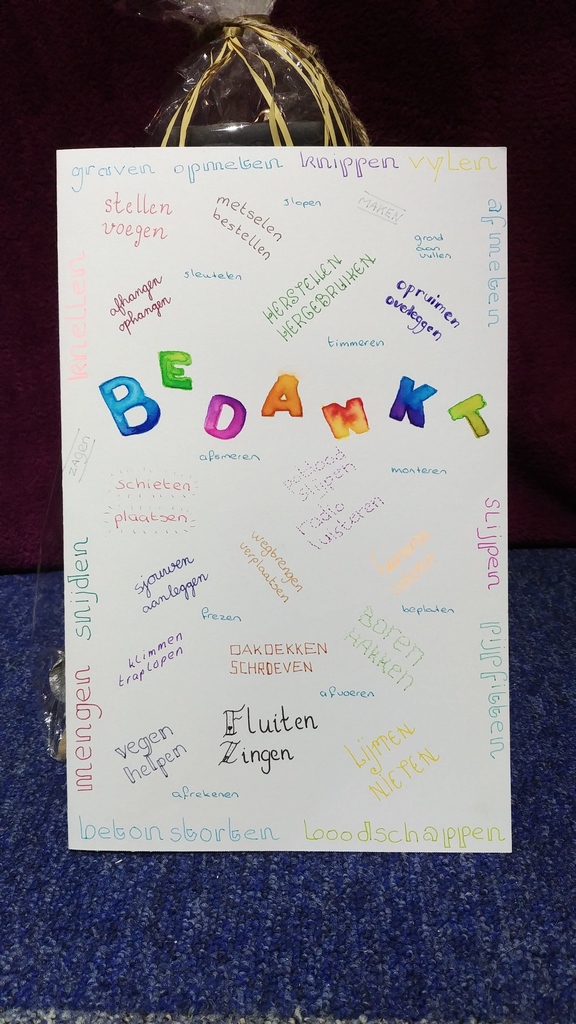 graven opmeten knippen vylen
stellen
voegen
metselen
bestellen
slopen
MAKEN
grond
aan
vullen
afmeten
knellen
afhangen
ophangen
sleutelen
HERSTELLEN
HERGEBRUIKEN
opruimen
overleggen
timmeren
BEDANKT
ZAGEN
afsmeren
potlood
slijpen
monteren
schieten
plaatsen
radio
luisteren
slijpen
snijden
sjouwen
aanleggen
wegbrengen
verplaatsen
frezen
beplaten
klimmen
traplopen
DAKDEKKEN
SCHROEVEN
Boren
HAKKEN
pijpfitten
mengen
afvoeren
vegen
helpen
Fluiten
Zingen
LIJMEN
NIETEN
afrekenen
beton storten boodschappen